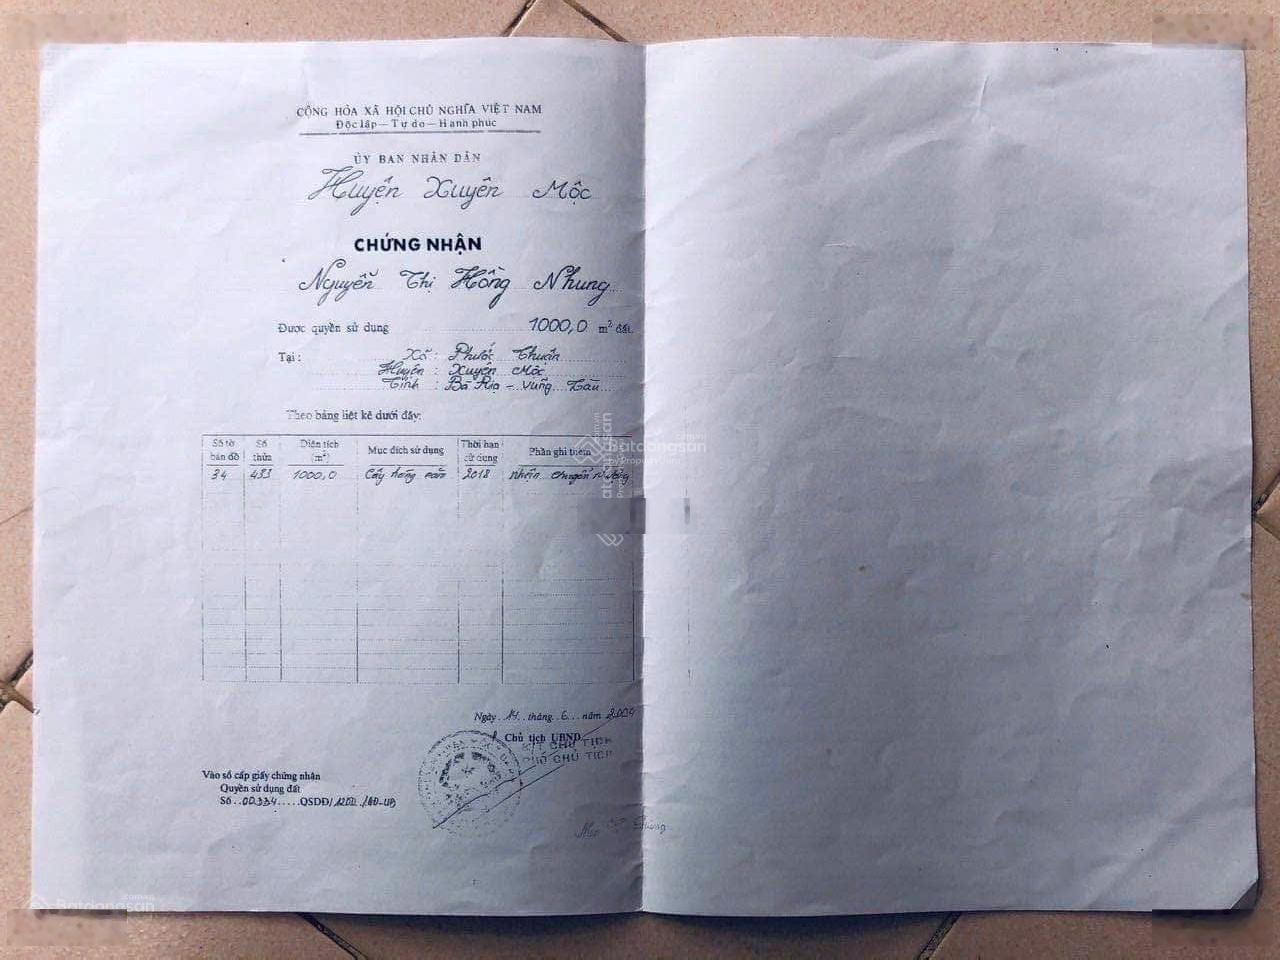 CỘNG HÒA XÃ HỘI CHỦ NGHĨA VIỆT NAM
Độc lập – Tự do – Hạnh phúc
ỦY BAN NHÂN DÂN
Huyện Xuyên Mộc
CHỨNG NHẬN
Nguyễn Thị Hồng Nhung
Được quyền sử dụng 1000,0 m² đất.
Tại : Xã : Phước Thuận
Huyện : Xuyên Mộc
Tỉnh : Bà Rịa - Vũng Tàu
Theo bảng liệt kê dưới đây:
Số tờ bản đồ Số thửa Diện tích (m²) Mục đích sử dụng Thời hạn sử dụng Phần ghi thêm
34 433 1000,0 Cây hàng năm 2018 nhận chuyển nhượng
Batdongsan
by PropertyGuru
Ngày 14 tháng 6 năm 2004
Chủ tịch UBND
K/T CHỦ TỊCH
PHÓ CHỦ TỊCH
Vào sổ cấp giấy chứng nhận
Quyền sử dụng đất
Số 00334 QSDĐ/
Batdongsan